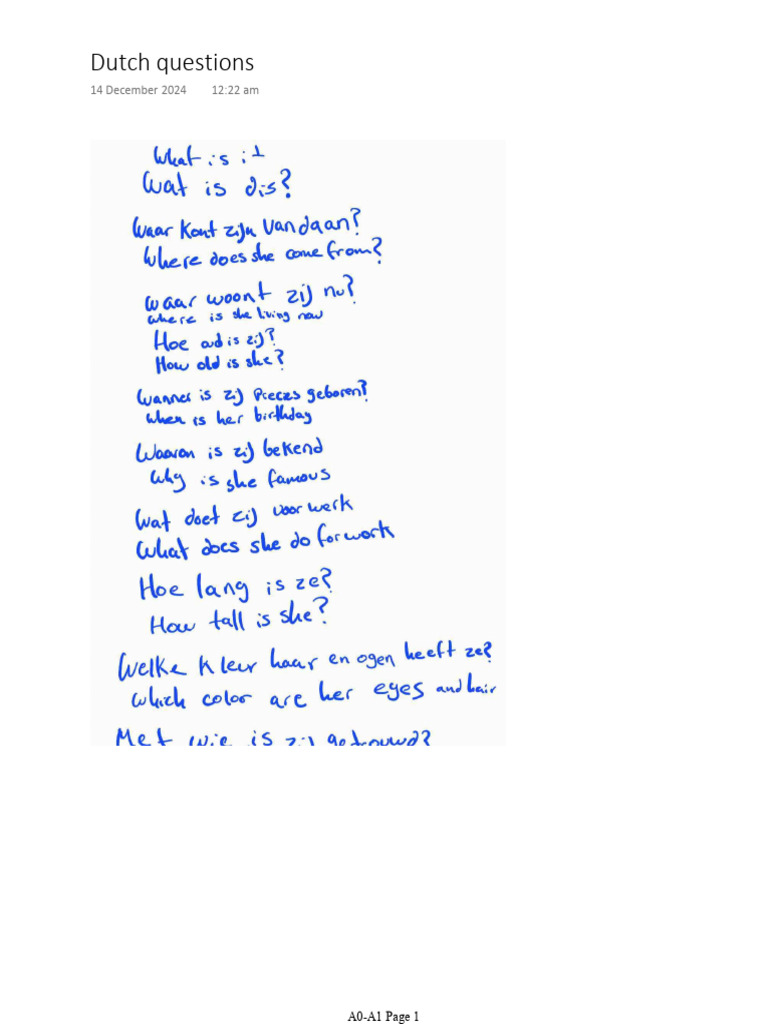 Dutch questions
14 December 2024 12:22 am
What is it
Wat is dis?
Waar komt zijn vandaan?
Where does she come from?
Waar woont zij nu?
Where is she living now
Hoe oud is zij?
How old is she?
Wanner is zij Precies geboren?
When is her birthday
Waarom is zij bekend
Why is she famous
Wat doet zij voor werk
What does she do for work
Hoe lang is ze?
How tall is she?
Welke kleur haar en ogen heeft ze?
Which color are her eyes and hair
Met wie is zij getrouwd?
A0-A1 Page 1